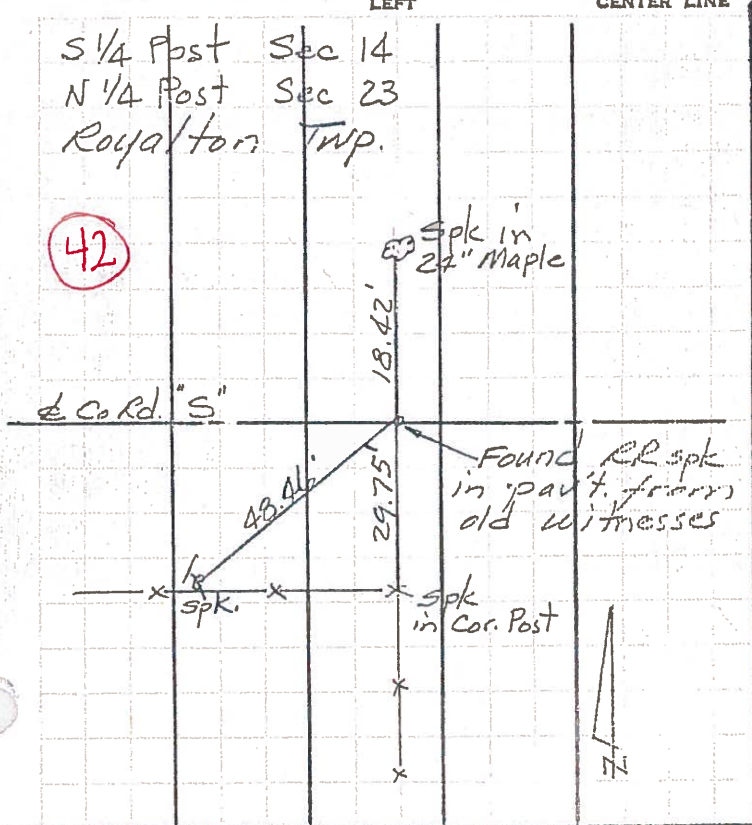 LEFT
CENTER LINE
S 1/4 Post Sec 14
N 1/4 Post Sec 23
Royalton Twp.
42
Spk in
24" Maple
18.42'
℄ Co. Rd. "S"
Found RR spk
in pav't. from
old witnesses
48.46'
29.75'
spk.
Spk
in Cor. Post
N